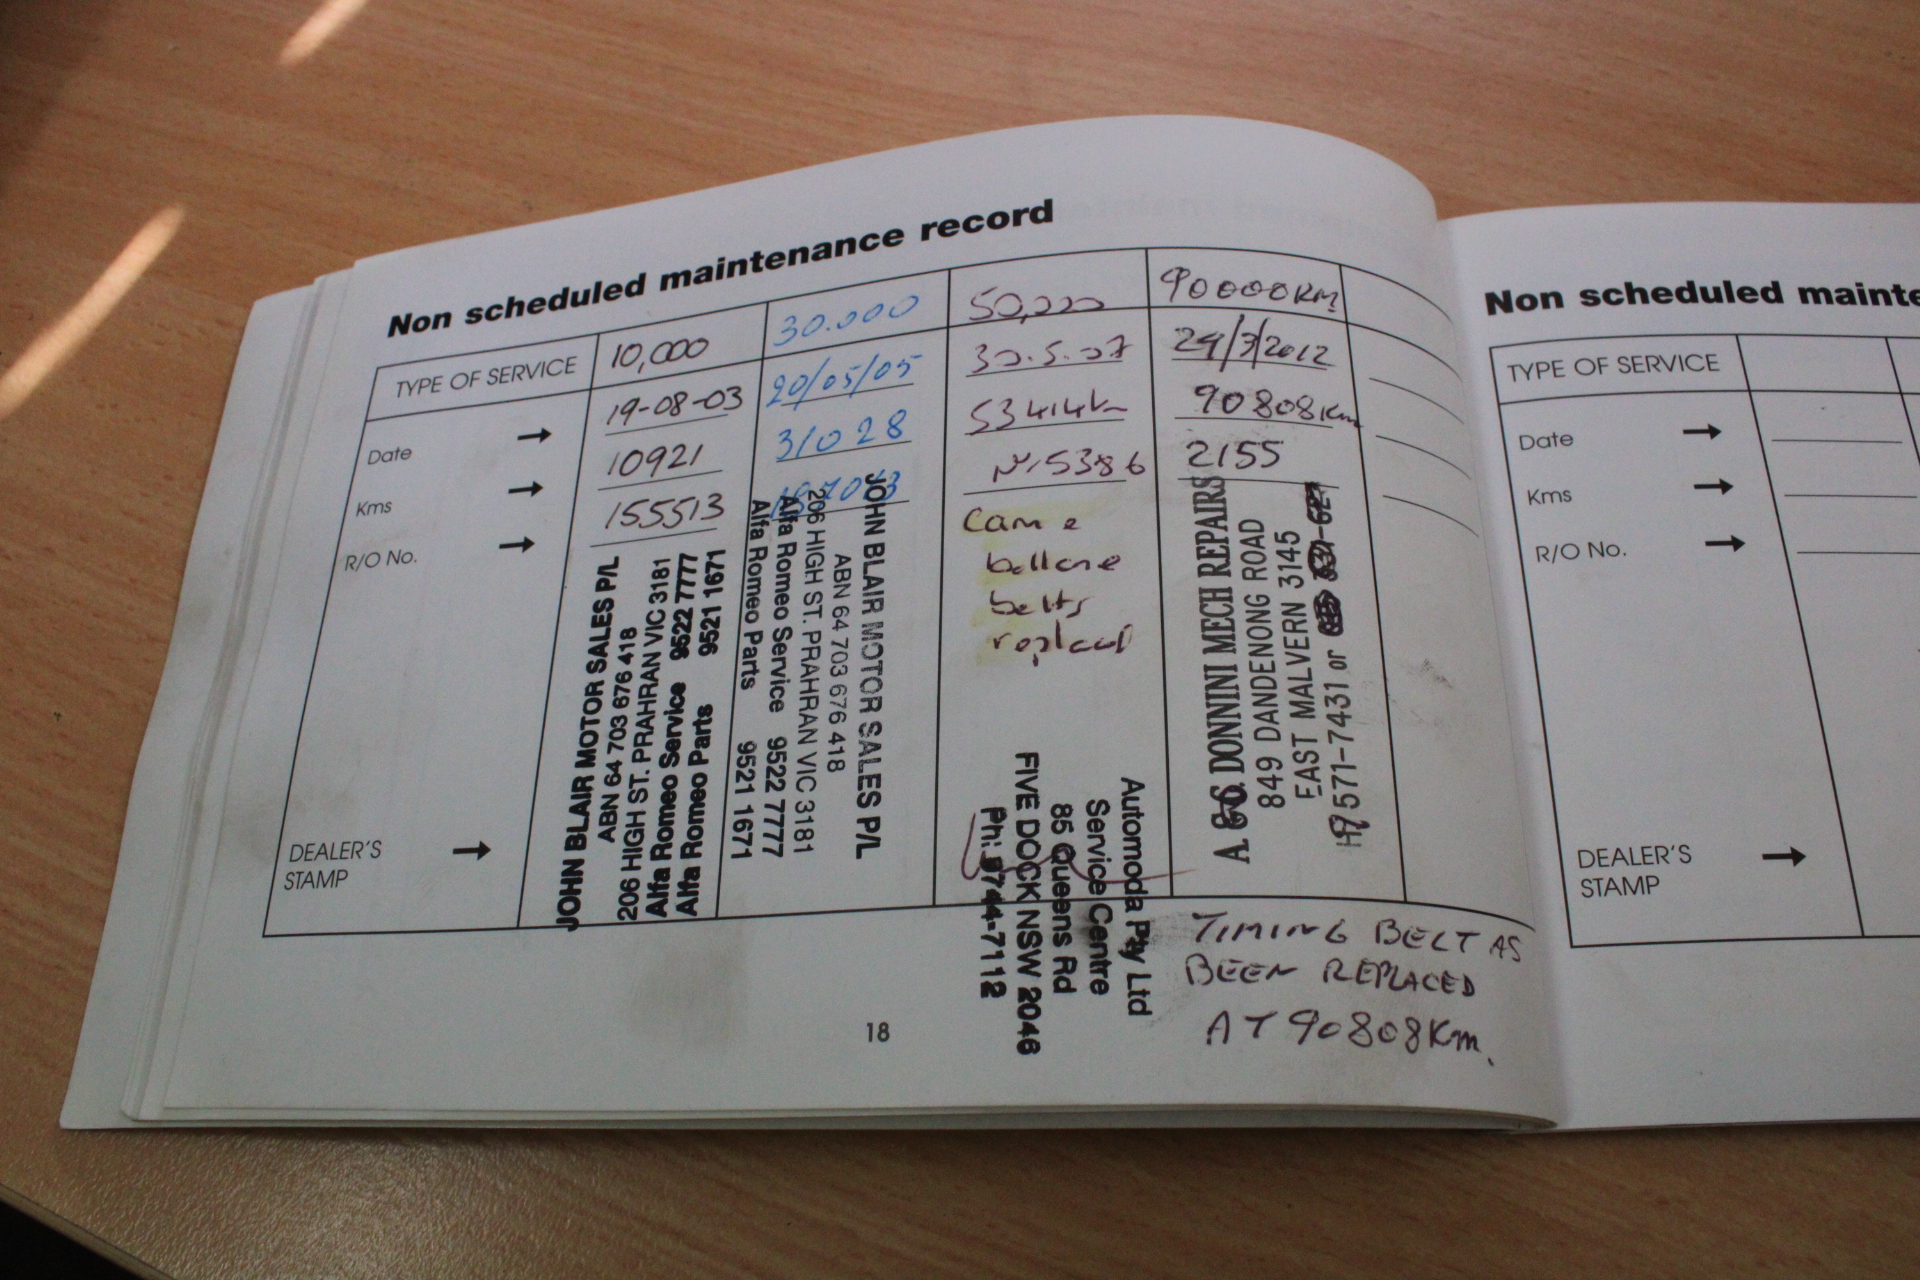 Non scheduled maintenance record
TYPE OF SERVICE 10,000 30.000 50,000 90000KM
Date → 19-08-03 20/05/05 30.5.07 24/3/2012
Kms → 10921 31028 53414km 90808Km
R/O No. → 155513 15386 2155
Cam &
ballance
belts
replaced
DEALER'S
STAMP →
JOHN BLAIR MOTOR SALES P/L
ABN 64 703 676 418
206 HIGH ST. PRAHRAN VIC 3181
Alfa Romeo Service 9522 7777
Alfa Romeo Parts 9521 1671
JOHN BLAIR MOTOR SALES P/L
ABN 64 703 676 418
206 HIGH ST. PRAHRAN VIC 3181
Alfa Romeo Service 9522 7777
Alfa Romeo Parts 9521 1671
Automoda Pty Ltd
Service Centre
85 Queens Rd
FIVE DOCK NSW 2046
Ph: 9744-7112
A. & G. DONNINI MECH REPAIRS
849 DANDENONG ROAD
EAST MALVERN 3145
9571-7431 or
TIMING BELT AS
BEEN REPLACED
AT 90808Km.
18
Non scheduled mainte
TYPE OF SERVICE
Date →
Kms →
R/O No. →
DEALER'S
STAMP →